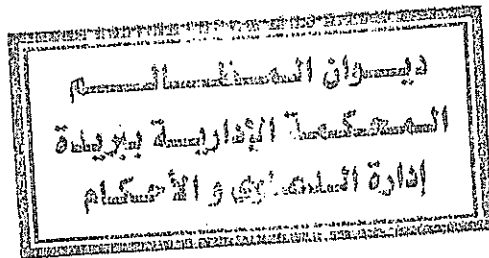 ديوان المظالم
المحكمة الإدارية ببريدة
إدارة الدعاوى و الأحكام